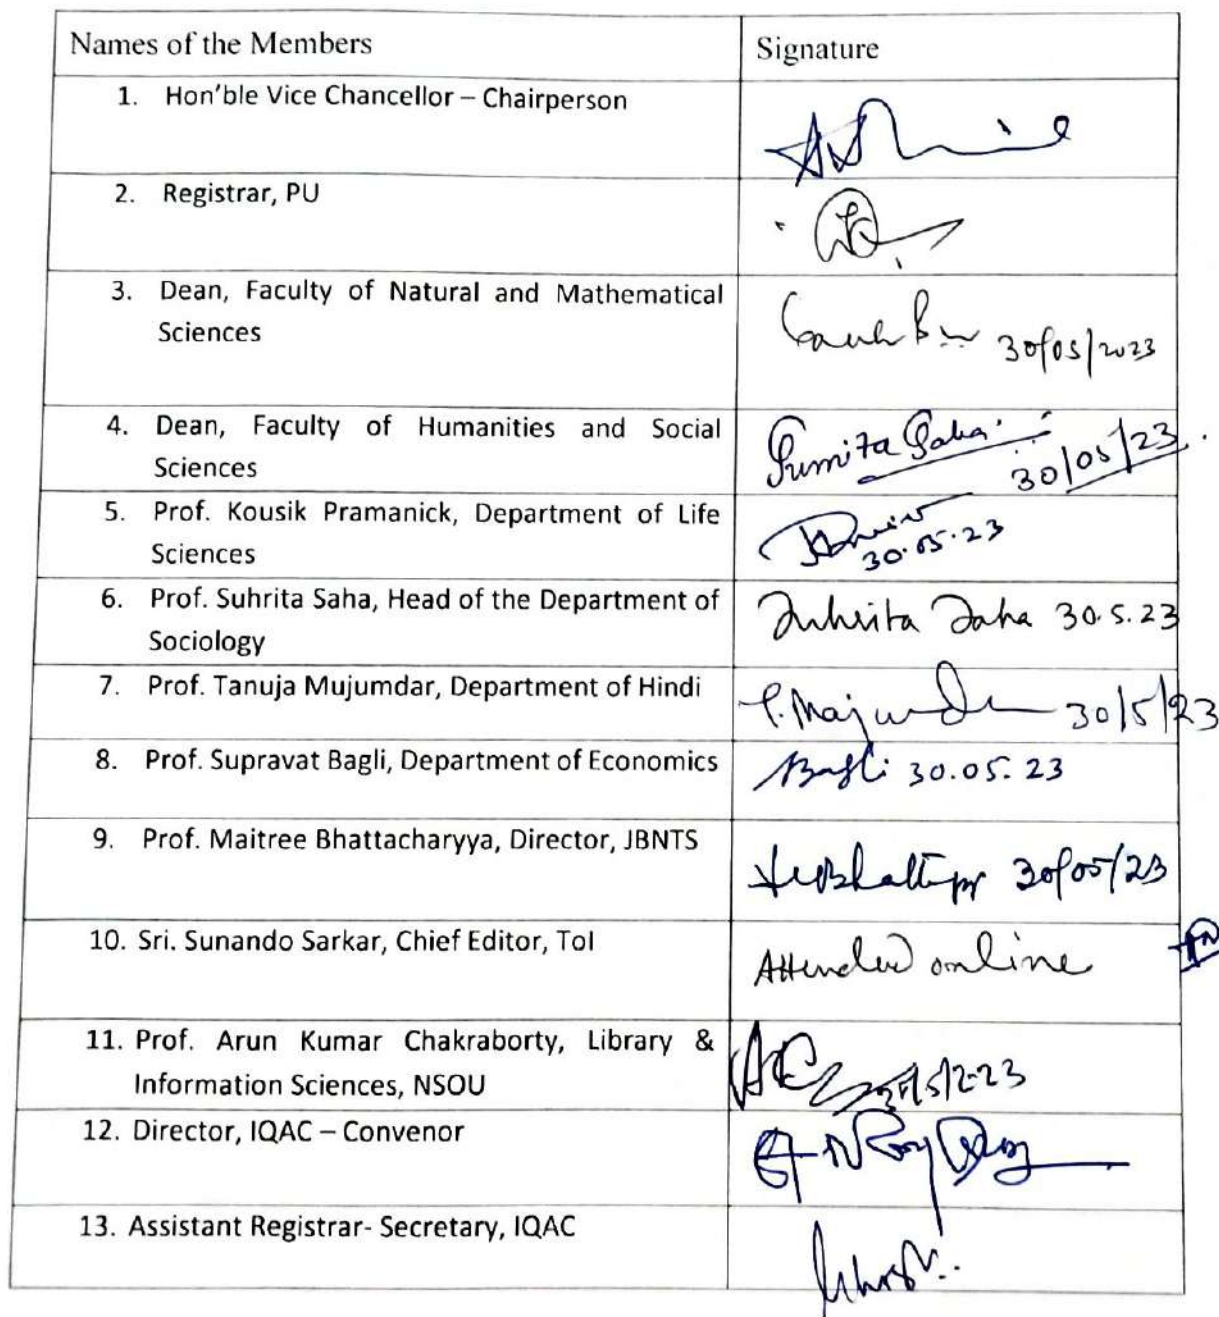 Names of the Members
Signature
1. Hon'ble Vice Chancellor – Chairperson
2. Registrar, PU
3. Dean, Faculty of Natural and Mathematical
Sciences
30/05/2023
4. Dean, Faculty of Humanities and Social
Sciences
Sumita Saha
30/05/23
5. Prof. Kousik Pramanick, Department of Life
Sciences
30.05.23
6. Prof. Suhrita Saha, Head of the Department of
Sociology
Suhrita Saha 30.5.23
7. Prof. Tanuja Mujumdar, Department of Hindi
T. Majumdar 30/5/23
8. Prof. Supravat Bagli, Department of Economics
Bagli 30.05.23
9. Prof. Maitree Bhattacharyya, Director, JBNTS
30/05/23
10. Sri. Sunando Sarkar, Chief Editor, ToI
Attended online
11. Prof. Arun Kumar Chakraborty, Library &
Information Sciences, NSOU
12. Director, IQAC – Convenor
13. Assistant Registrar- Secretary, IQAC